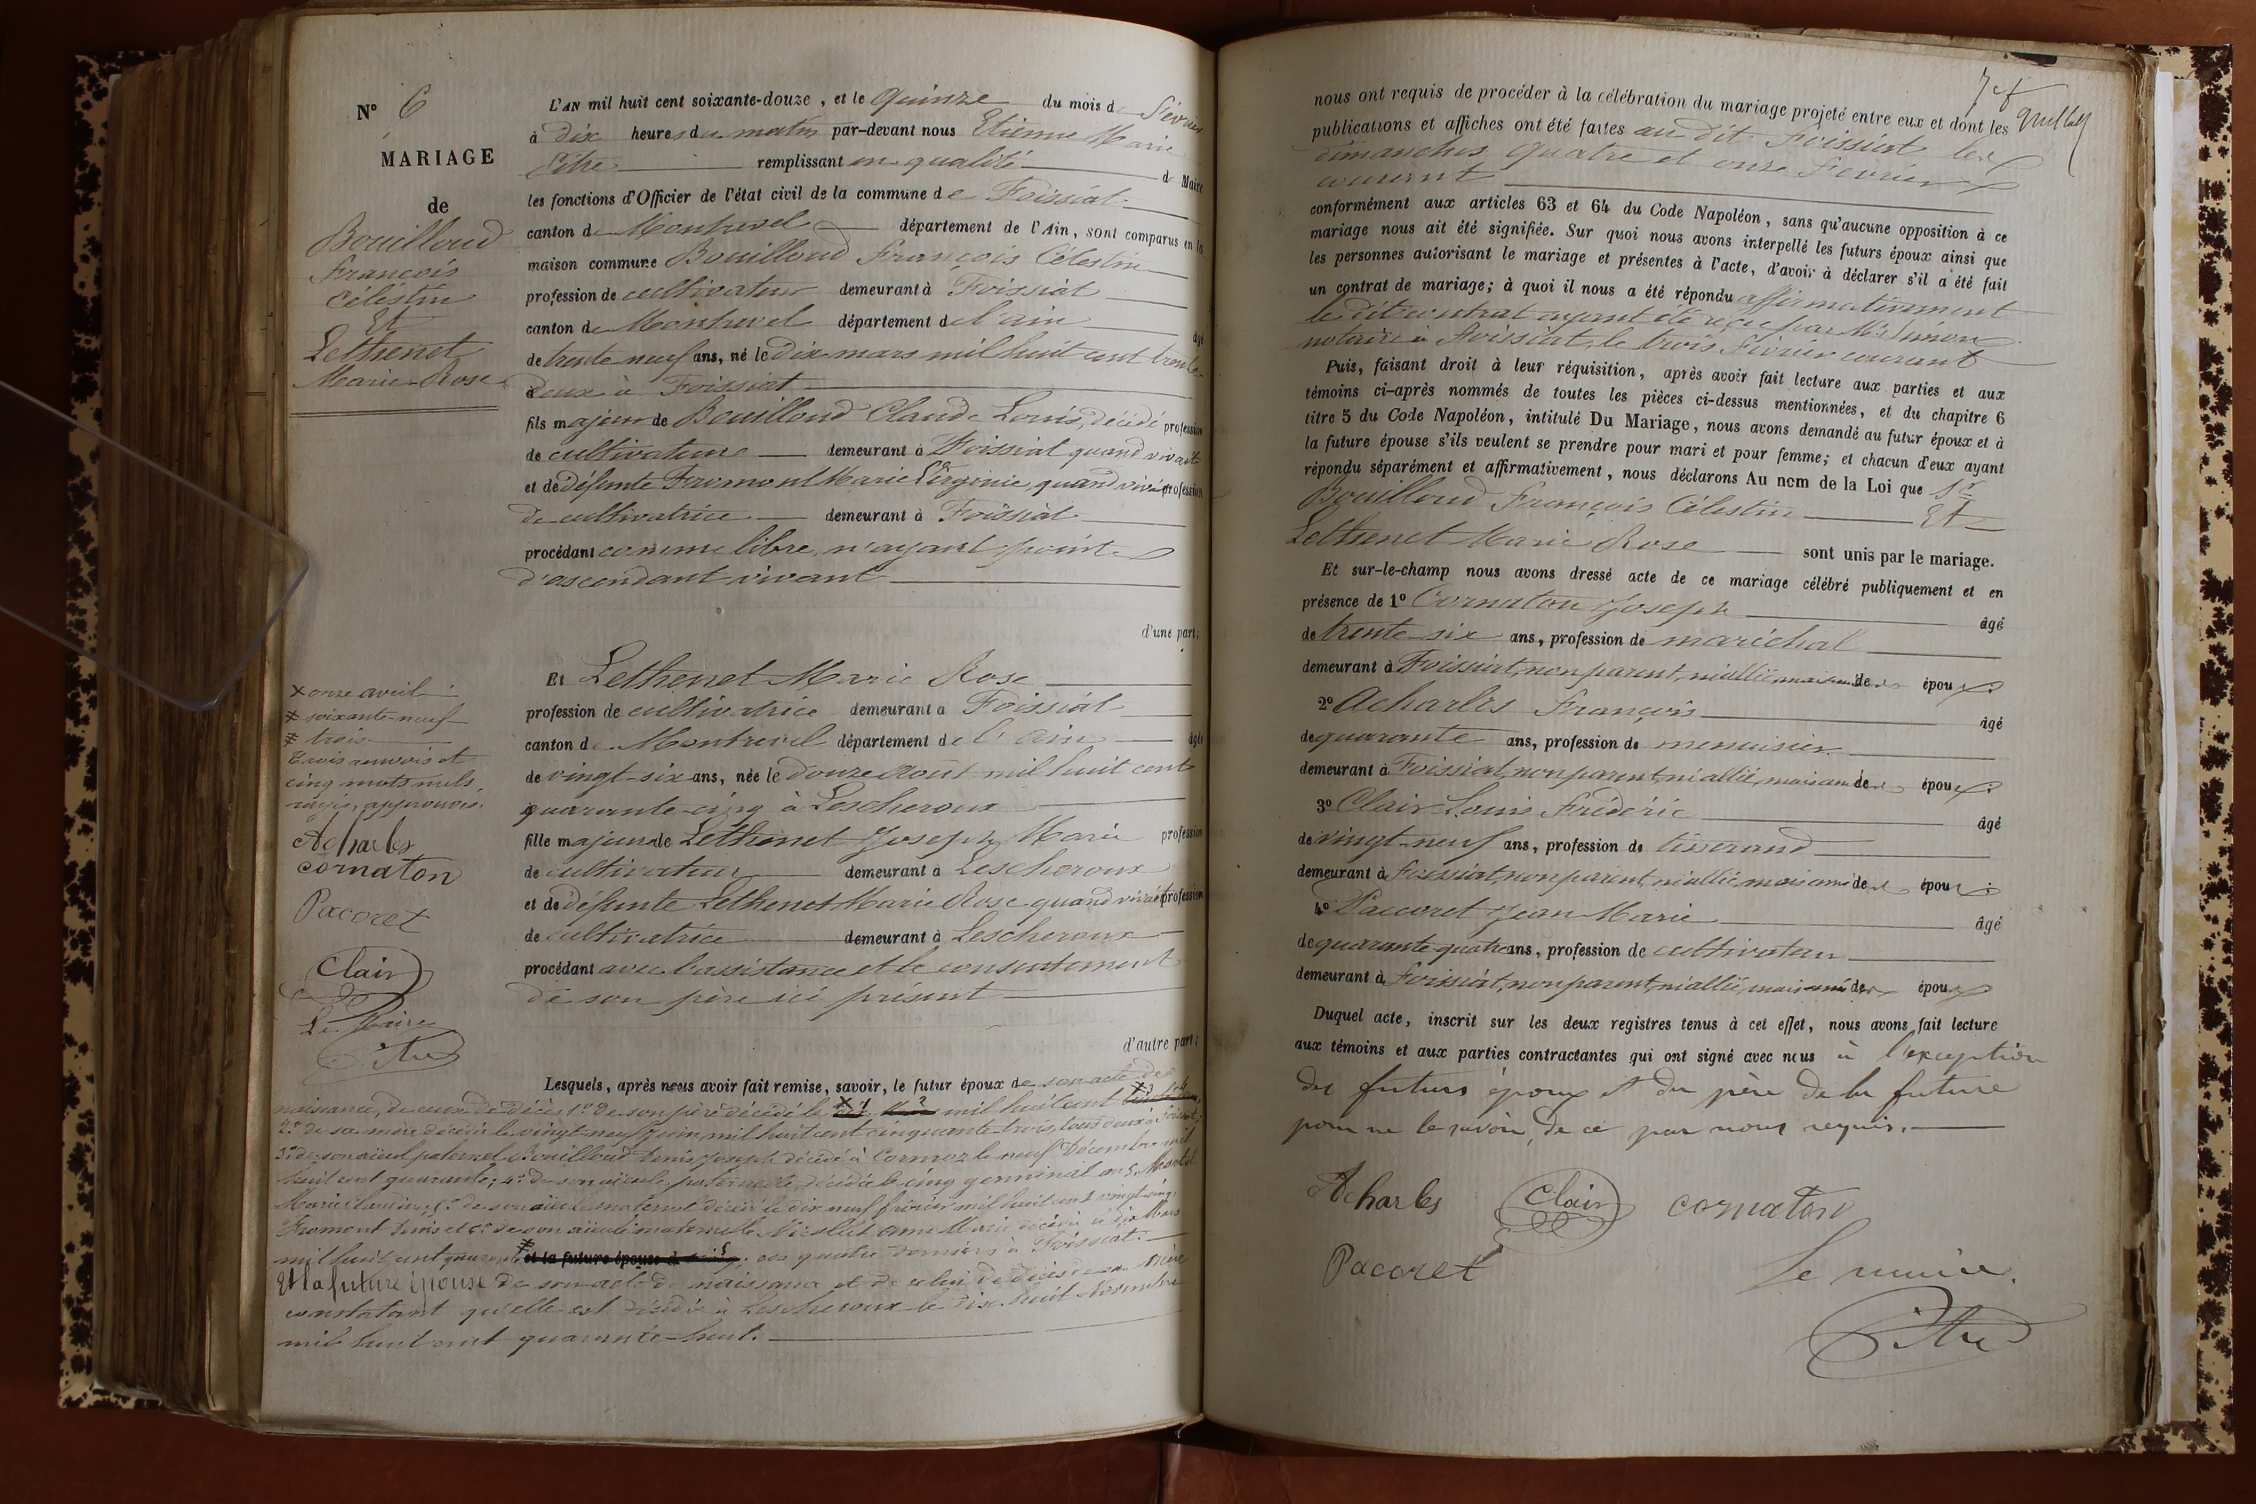 N° 6
MARIAGE
de
Bouilloud
François
Célestin
Et
Lethenet
Marie-Rose
L'AN mil huit cent soixante-douze, et le quinze du mois de Février
à dix heures du matin par-devant nous Etienne Marie
Pitre remplissant en qualité de Maire
les fonctions d'Officier de l'état civil de la commune de Foissiat
canton de Montrevel département de l'Ain, sont comparus en la
maison commune Bouilloud François Célestin
profession de cultivateur demeurant à Foissiat
canton de Montrevel département de l'ain âgé
de trente neuf ans, né le dix mars mil huit cent trente
deux à Foissiat
fils majeur de Bouilloud Claude Louis, décédé profession
de cultivateur demeurant à Foissiat quand vivait
et de défunte Fromont Marie Virginie, quand vivait profession
de cultivatrice demeurant à Foissiat
procédant comme libre, n'ayant point
d'ascendant vivant
d'une part;
Et Lethenet Marie Rose
profession de cultivatrice demeurant à Foissiat
canton de Montrevel département de l'ain âgée
de vingt-six ans, née le douze août mil huit cent
quarante-cinq à Lescheroux
fille majeure de Lethenet Joseph Marie profession
de cultivateur demeurant à Lescheroux
et de défunte Lethenet Marie Rose quand vivait profession
de cultivatrice demeurant à Lescheroux
procédant avec l'assistance et le consentement
de son père ici présent
d'autre part;
x onze avril
soixante-neuf
trois
Trois renvois et
cinq mots nuls
rayés, approuvés.
Acharles
cornaton
Pacoret
Clair
Le Maire
Pitre
Lesquels, après nous avoir fait remise, savoir, le futur époux de son acte de
naissance, de ceux de décès 1° de son père décédé le mil huit cent
2° de sa mère décédée le vingt-neuf juin mil huit cent cinquante trois, tous deux à Foissiat;
3° de son aïeul paternel Bouilloud Denis Joseph décédé à Cormoz le neuf Décembre mil
huit cent quarante; 4° de son aïeule paternelle décédée le cinq germinal an
Marie Claudine; 5° de son aïeul maternel décédé le dix neuf février mil huit cent vingt-cinq
Froment Denis et 6° de son aïeule maternelle Anne Marie décédée le dix Mars
mil huit cent quarante et la future épouse d ces quatre derniers à Foissiat.
Et la future épouse de son acte de naissance et de celui de décès de sa mère
constatant qu'elle est décédée à Lescheroux le dix huit Novembre
mil huit cent quarante-huit.
nous ont requis de procéder à la célébration du mariage projeté entre eux et dont les
publications et affiches ont été faites au dit Foissiat les
dimanches quatre et onze Février
courant
conformément aux articles 63 et 64 du Code Napoléon, sans qu'aucune opposition à ce
mariage nous ait été signifiée. Sur quoi nous avons interpellé les futurs époux ainsi que
les personnes autorisant le mariage et présentes à l'acte, d'avoir à déclarer s'il a été fait
un contrat de mariage; à quoi il nous a été répondu affirmativement
le dit contrat ayant été reçu par Me Simon
notaire à Foissiat, le trois Février courant
Puis, faisant droit à leur réquisition, après avoir fait lecture aux parties et aux
témoins ci-après nommés de toutes les pièces ci-dessus mentionnées, et du chapitre 6
titre 5 du Code Napoléon, intitulé Du Mariage, nous avons demandé au futur époux et à
la future épouse s'ils veulent se prendre pour mari et pour femme; et chacun d'eux ayant
répondu séparément et affirmativement, nous déclarons Au nom de la Loi que Sr
Bouilloud François Célestin Et
Lethenet Marie Rose sont unis par le mariage.
Et sur-le-champ nous avons dressé acte de ce mariage célébré publiquement et en
présence de 1° Cornaton Joseph âgé
de trente six ans, profession de maréchal
demeurant à Foissiat, non parent, ni allié, mais ami des époux.
2° Acharles François âgé
de quarante ans, profession de menuisier
demeurant à Foissiat, non parent, ni allié, mais ami des époux.
3° Clair Louis Frédéric âgé
de vingt-neuf ans, profession de tisserand
demeurant à Foissiat, non parent, ni allié, mais ami des époux.
4° Paccoret Jean Marie âgé
de quarante quatre ans, profession de cultivateur
demeurant à Foissiat, non parent, ni allié, mais ami des époux
Duquel acte, inscrit sur les deux registres tenus à cet effet, nous avons fait lecture
aux témoins et aux parties contractantes qui ont signé avec nous à l'exception
des futurs époux et du père de la future
pour ne le savoir, de ce par nous requis.
Acharles Clair cornaton
Pacoret Le maire.
Pitre